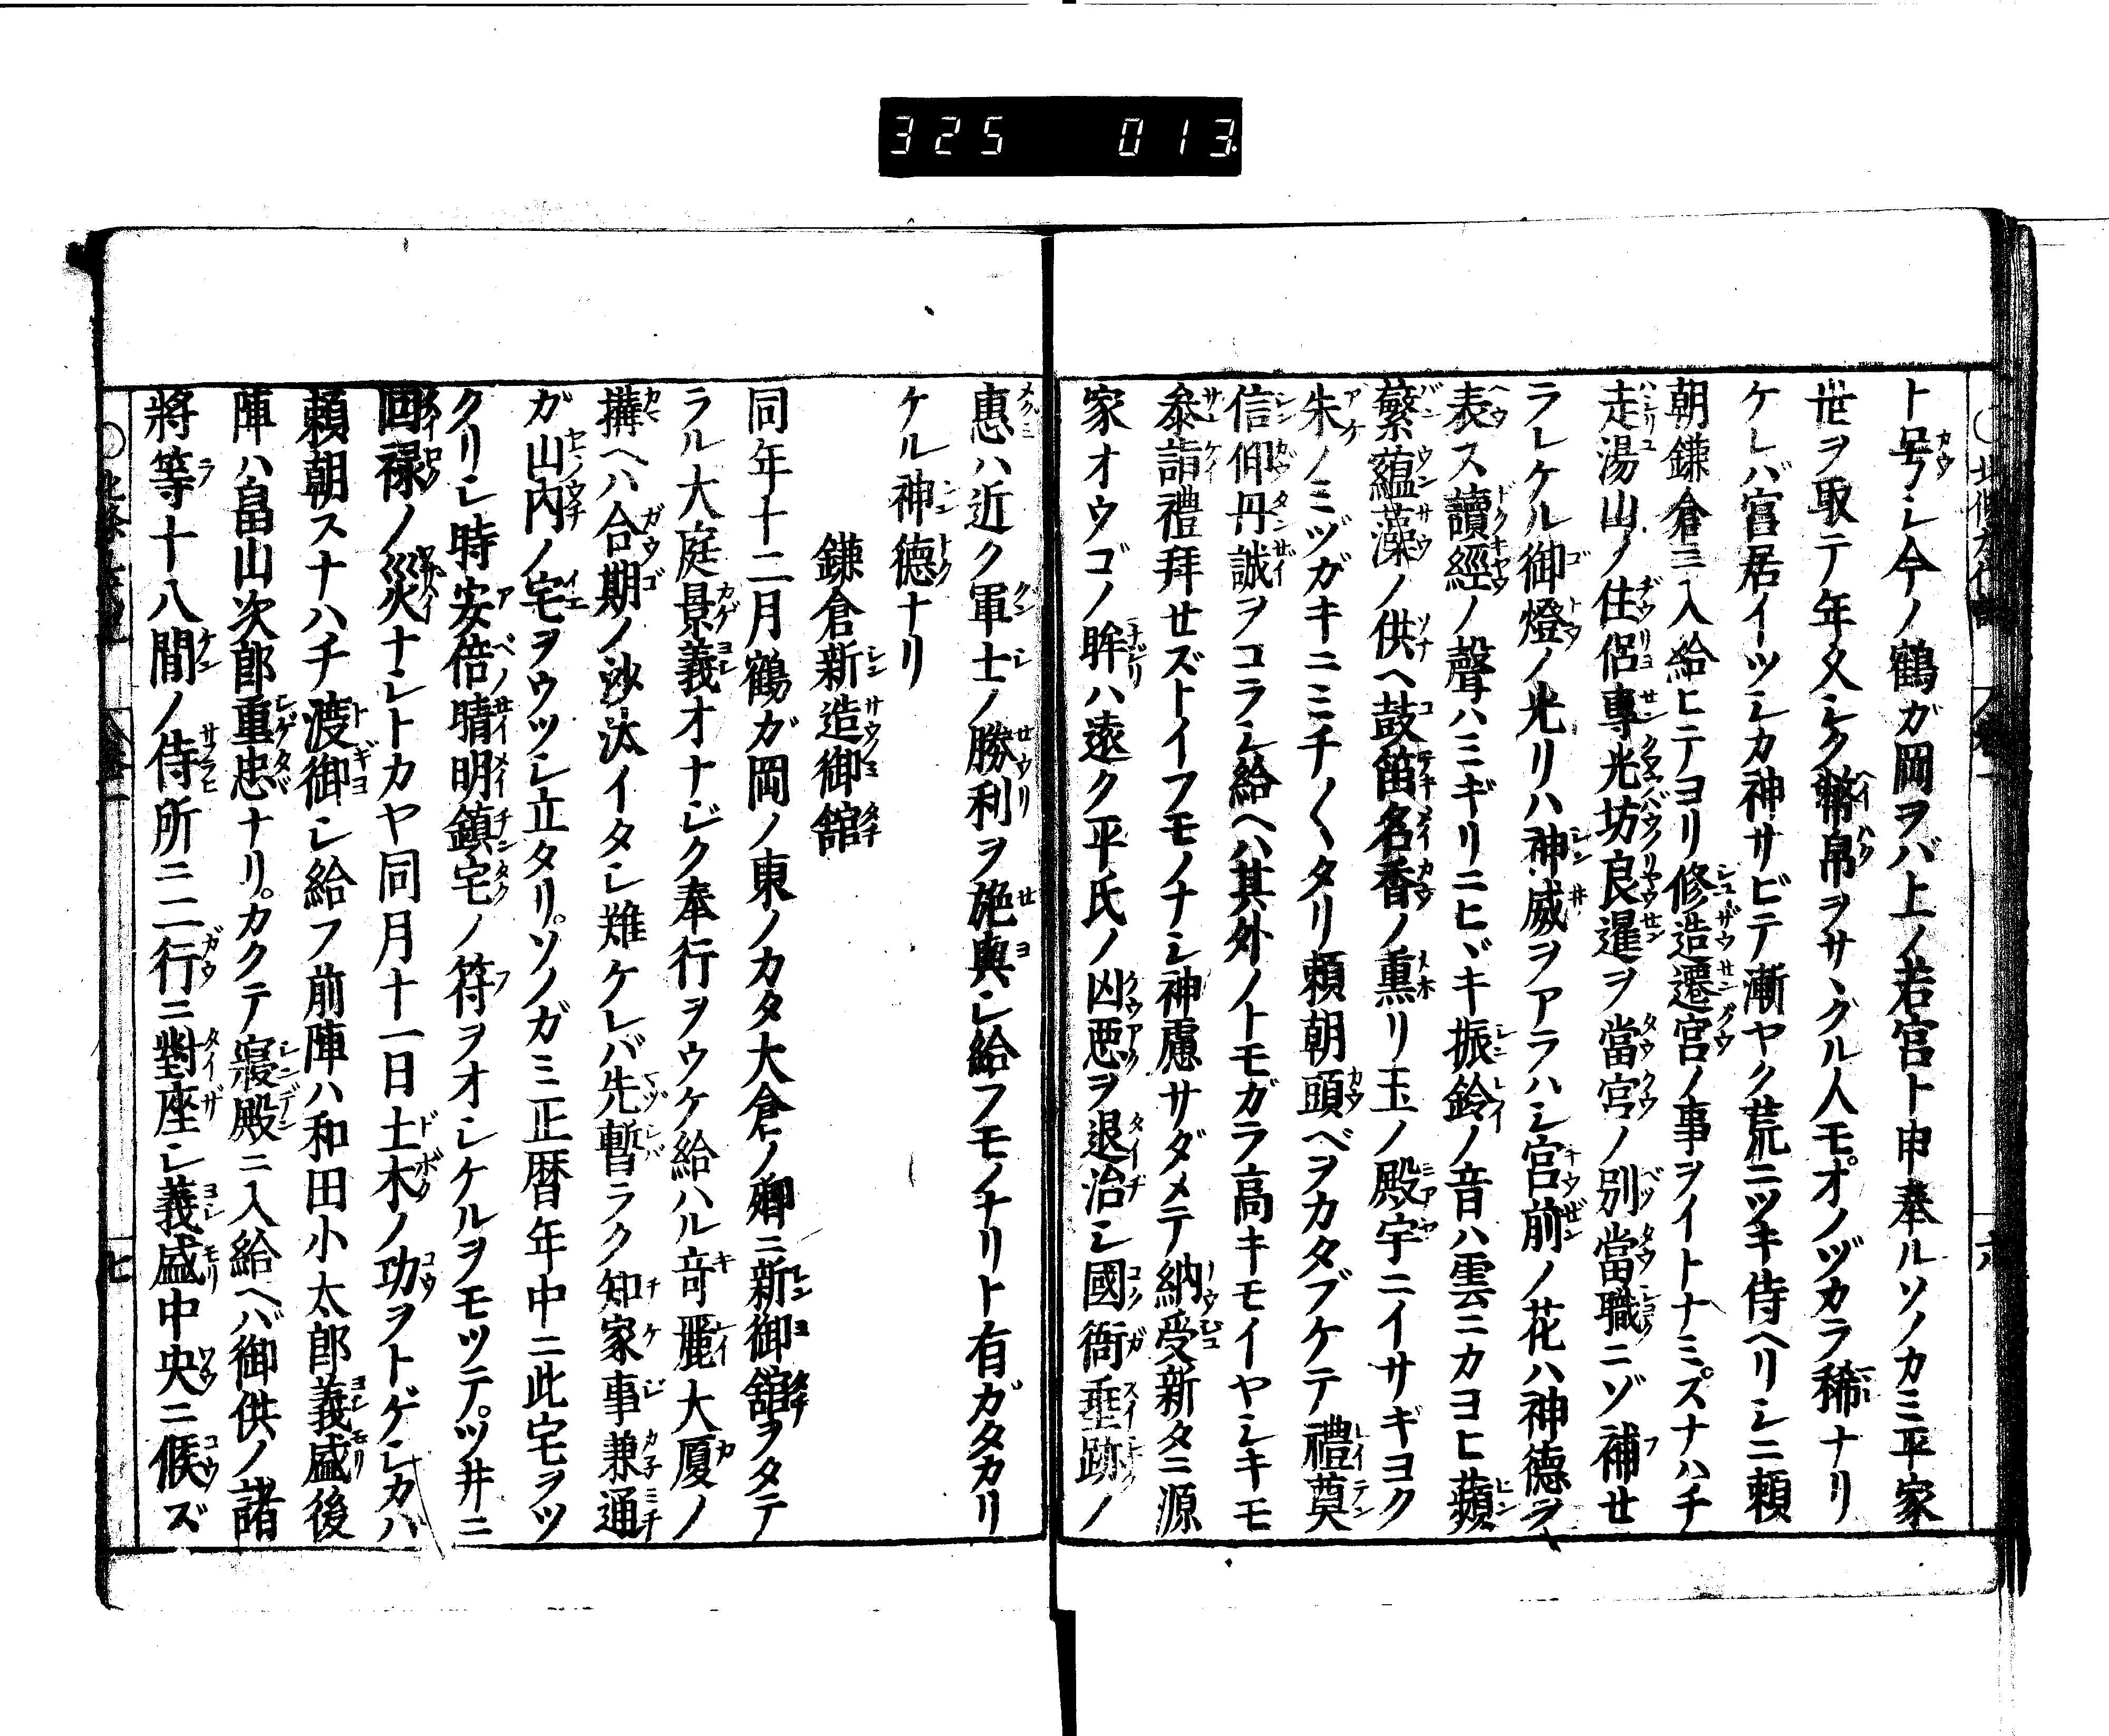 325 013
ト号シ今ノ鶴ガ岡ヲバ上ノ若宮ト申奉ルソノカミ平家
世ヲ取テ年久シク幣帛ヲサヽグル人モオノヅカラ稀ナリ
ケレバ宮居イーツシカ神サビテ漸ヤク荒ニツキ侍ヘリシニ頼
朝鎌倉ニ入給ヒテヨリ修造遷宮ノ事ヲイトナミスナハチ
走湯山ノ住侶專光坊良暹ヲ當宮ノ別當職ニゾ補せ
ラレケル御燈ノ光リハ神威ヲアラハシ宮前ノ花ハ神德ヲ
表ス讀經ノ聲ハミギリニヒヾキ振鈴ノ音ハ雲ニカヨヒ蘋
蘩蘊藻ノ供ヘ鼓笛名香ノ熏リ玉ノ殿宇ニイサギヨク
朱ノミヅガキニミチ〱タリ頼朝頭ベヲカタブケテ禮奠
信仰丹誠ヲコラシ給ヘハ其外ノトモガラ高キモイヤシキモ
叅詣禮拜せズトイフモノナシ神慮サダメテ納受新タニ源
家オウゴノ眸ハ遠ク平氏ノ凶悪ヲ退治シ國衙垂跡ノ
惠ハ近ク軍士ノ勝利ヲ施與シ給フモノナリト有ガタカリ
ケル神德ナリ
鎌倉新造御舘
同年十二月鶴ガ岡ノ東ノカタ大倉ノ郷ニ新御舘ヲタテ
ラル大庭景義オナジク奉行ヲウケ給ハル竒麗大厦ノ
搆ヘハ合期ノ沙汰イタシ難ケレバ先暫ラク知家事兼通
ガ山内ノ宅ヲウツシ立タリ。ソノガミ正暦年中ニ此宅ヲツ
クリシ時安倍晴明鎮宅ノ符ヲオシケルヲモツテ。ツ井ニ
回禄ノ災ナシトカヤ同月十一日土木ノ功ヲトゲシカバ
頼朝スナハチ渡御シ給フ前陣ハ和田小太郎義盛後
陣ハ畠山次郎重忠ナリ。カクテ寢殿ニ入給ヘバ御供ノ諸
將等十八間ノ侍所ニ二行ニ對座シ義盛中央ニ候ズ
七